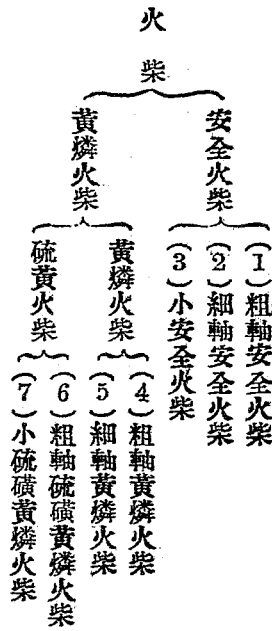 火柴
安全火柴
(1)粗軸安全火柴
(2)細軸安全火柴
(3)小安全火柴
黃燐火柴
黃燐火柴
(4)粗軸黃燐火柴
(5)細軸黃燐火柴
硫黃火柴
(6)粗軸硫磺黃燐火柴
(7)小硫磺黃燐火柴